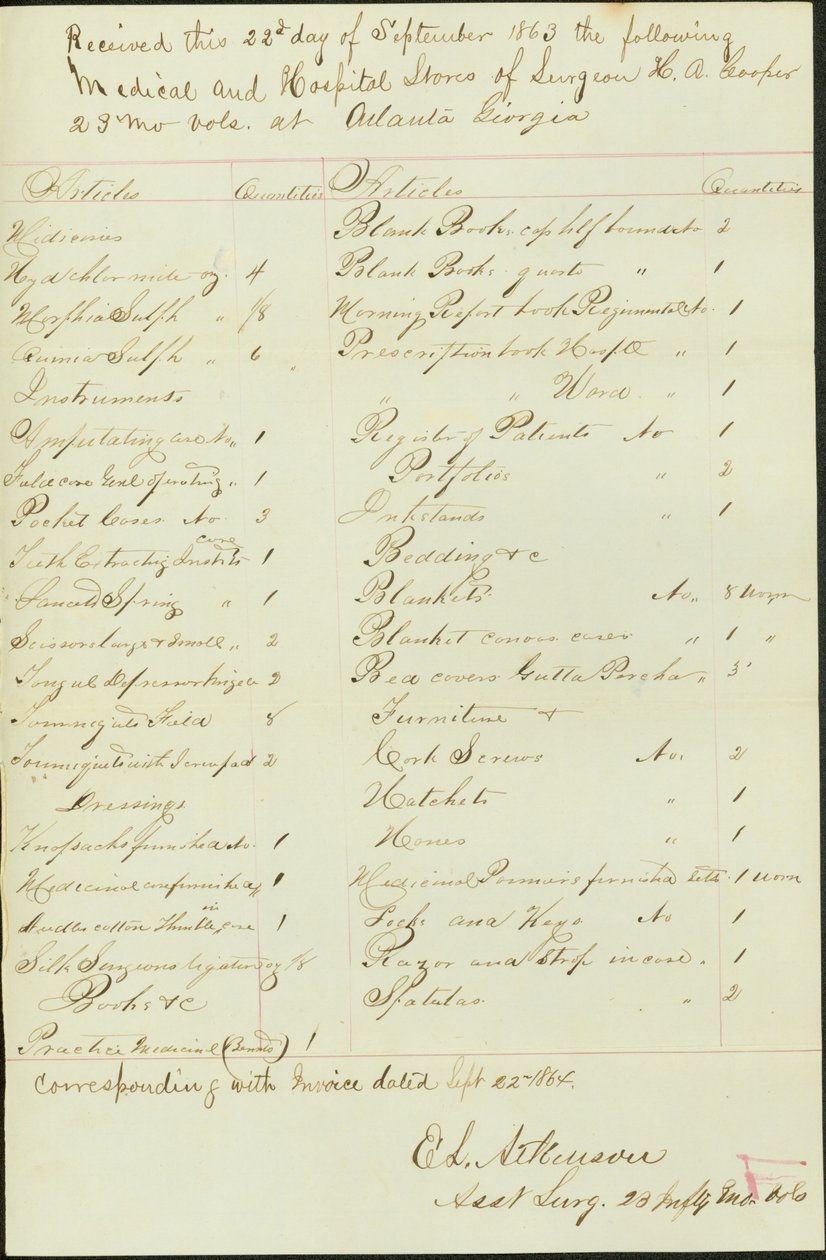 Received this 22d day of September 1863 the following
Medical and Hospital Stores of Surgeon H. A. Cooper
23 Mo Vols. at Atlanta Giorgia
Articles Quantities Articles Quantities
Midicines
Hyd chlor mite oz. 4
Morphia Sulph " 1/8
Quinia Sulph " 6
Instruments
Amputating case No " 1
Field case Genl operating " 1
Pocket Cases No 3
Teeth Extracting Instrts case 1
Lancets Spring " 1
Scissors large & small " 2
Tongue Depressor hinged 2
Tourniquets Field 8
Tourniquets with Screw pad 2
Dressings
Knapsacks furnished No. 1
Medicinal case furnished " 1
Needles cotton Thimble in case 1
Silk Surgeons ligature oz 1/8
Books & c
Practice Medicine 1
Blank Books cap hlf bound No 2
Blank Books quarto " 1
Morning Report book Regimental No. 1
Prescription book Hosptl " 1
" " Ward " 1
Register of Patients No 1
Portfolios " 2
Inkstands " 1
Bedding & c
Blankets No " 8 worn
Blanket canvas cases " 1 "
Bed covers Gutta Percha " 3
Furniture &
Cork Screws No. 2
Hatchets " 1
Hones " 1
Medicinal Panniers furnished sets. 1 worn
Locks and Keys No 1
Razor and Strop in case " 1
Spatulas " 2
Corresponding with Invoice dated Sept 22 1864.
E L. Atkinson
Asst Surg. 23 Infty Mo. Vols